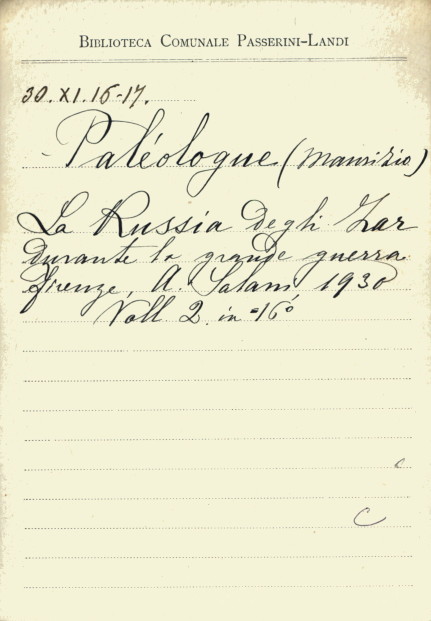 BIBLIOTECA COMUNALE PASSERINI-LANDI
30.XI.16-17.
Paléologue (Maurizio)
La Russia degli Zar
durante la grande guerra
Firenze, A. Salani, 1930
Voll 2. in -16º
c
C